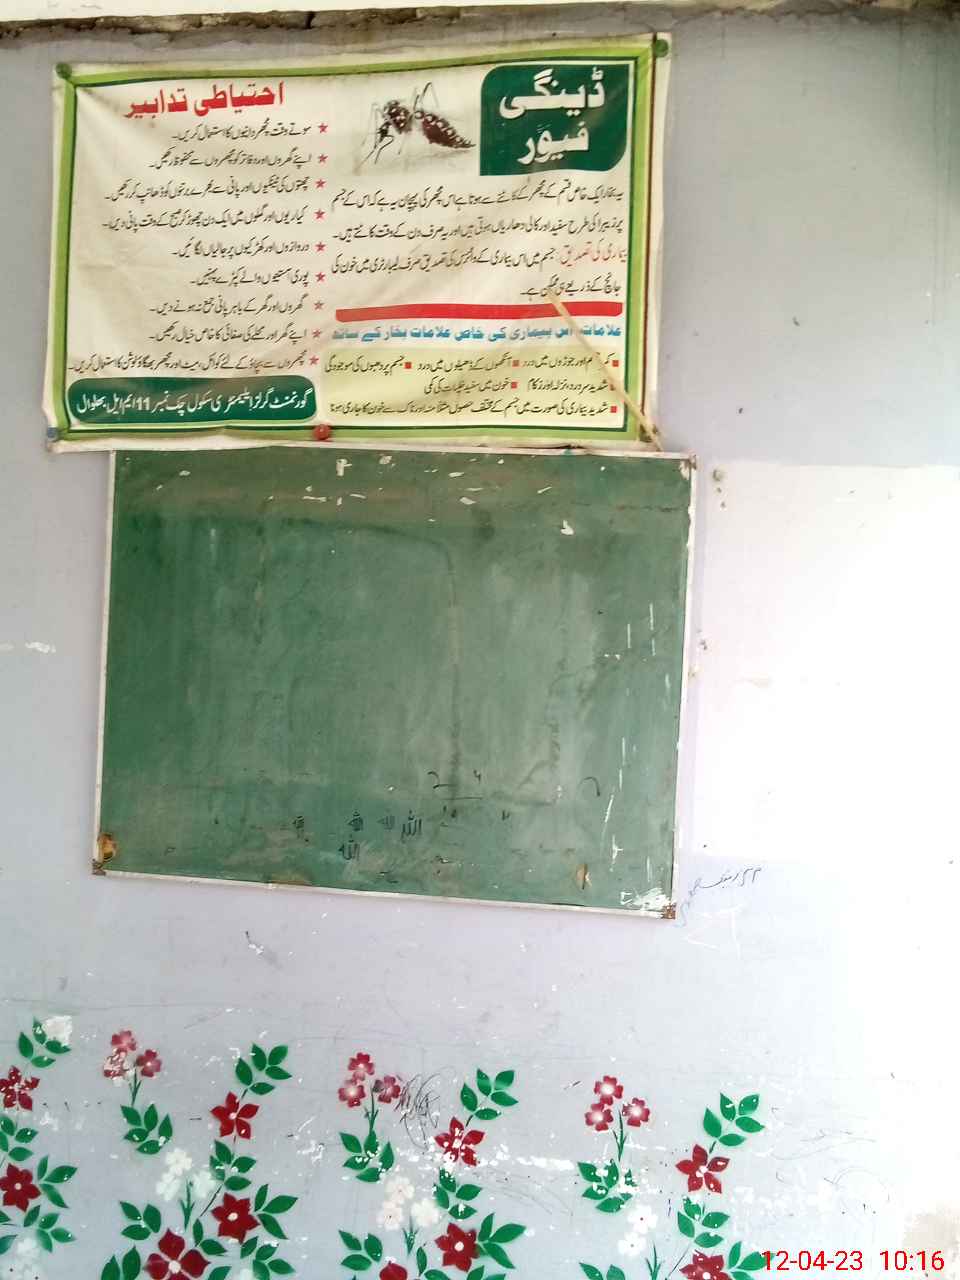 ڈینگی
فیور
یہ بخار ایک خاص قسم کے مچھر کے کاٹنے سے ہوتا ہے اس مچھر کی پہچان یہ ہے کہ اس کے جسم
پر زیبرا کی طرح سفید اور کالی دھاریاں ہوتی ہیں اور یہ صرف دن کے وقت کاٹتے ہیں۔
بیماری کی تصدیق: جسم میں اس بیماری کے وائرس کی تصدیق صرف لیبارٹری میں خون کی
جانچ کے ذریعے ہی ممکن ہے۔
علامات: اس بیماری کی خاص علامات بخار کے ساتھ
■ کمر اور جوڑوں میں درد ■ آنکھوں کے ڈھیلوں میں درد ■ جسم پر دھبوں کی موجودگی
■ شدید سر درد، نزلہ اور زکام ■ خون میں سفید خلیات کی کمی
■ شدید بیماری کی صورت میں جسم کے مختلف حصوں مثلاً منہ اور ناک سے خون کا جاری ہونا
احتیاطی تدابیر
★ سوتے وقت مچھر دانیوں کا استعمال کریں۔
★ اپنے گھروں اور دفاتر کو مچھروں سے محفوظ رکھیں۔
★ چھتوں کی ٹینکیوں اور پانی سے بھرے برتنوں کو ڈھانپ کر رکھیں۔
★ کیاریوں اور گملوں میں ایک دن چھوڑ کر صبح کے وقت پانی دیں۔
★ دروازوں اور کھڑکیوں پر جالیاں لگائیں۔
★ پوری آستیوں والے کپڑے پہنیں۔
★ گھروں اور گھر کے باہر پانی جمع نہ ہونے دیں۔
★ اپنے گھر اور محلے کی صفائی کا خاص خیال رکھیں۔
★ مچھروں سے بچاؤ کے لئے کوائل، میٹ اور مچھر بھگاؤ لوشن کا استعمال کریں۔
گورنمنٹ گرلز ایلیمنٹری سکول چک نمبر 11/ایم ایل بھلوال
اللہ اللہ اللہ اللہ
اللہ
12-04-23 10:16